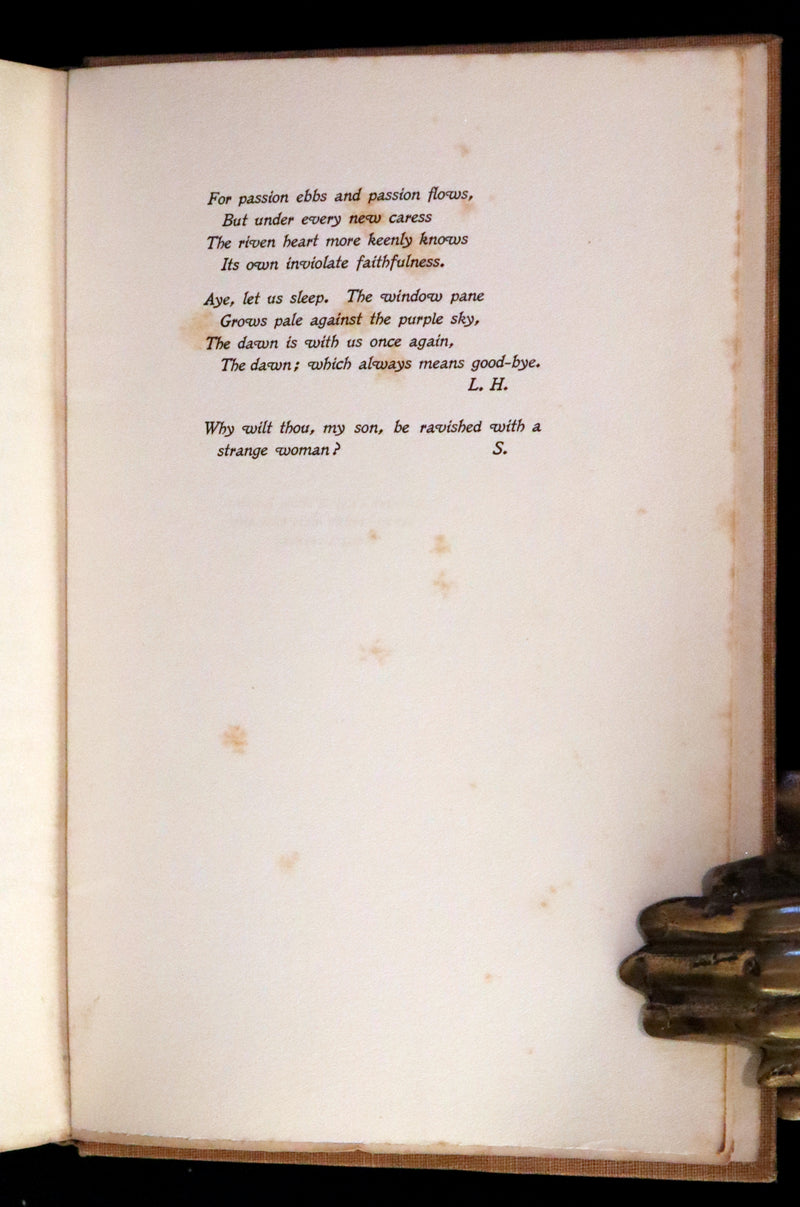 For passion ebbs and passion flows,
But under every new caress
The riven heart more keenly knows
Its own inviolate faithfulness.
Aye, let us sleep. The window pane
Grows pale against the purple sky,
The dawn is with us once again,
The dawn; which always means good-bye.
L. H.
Why wilt thou, my son, be ravished with a
strange woman? S.